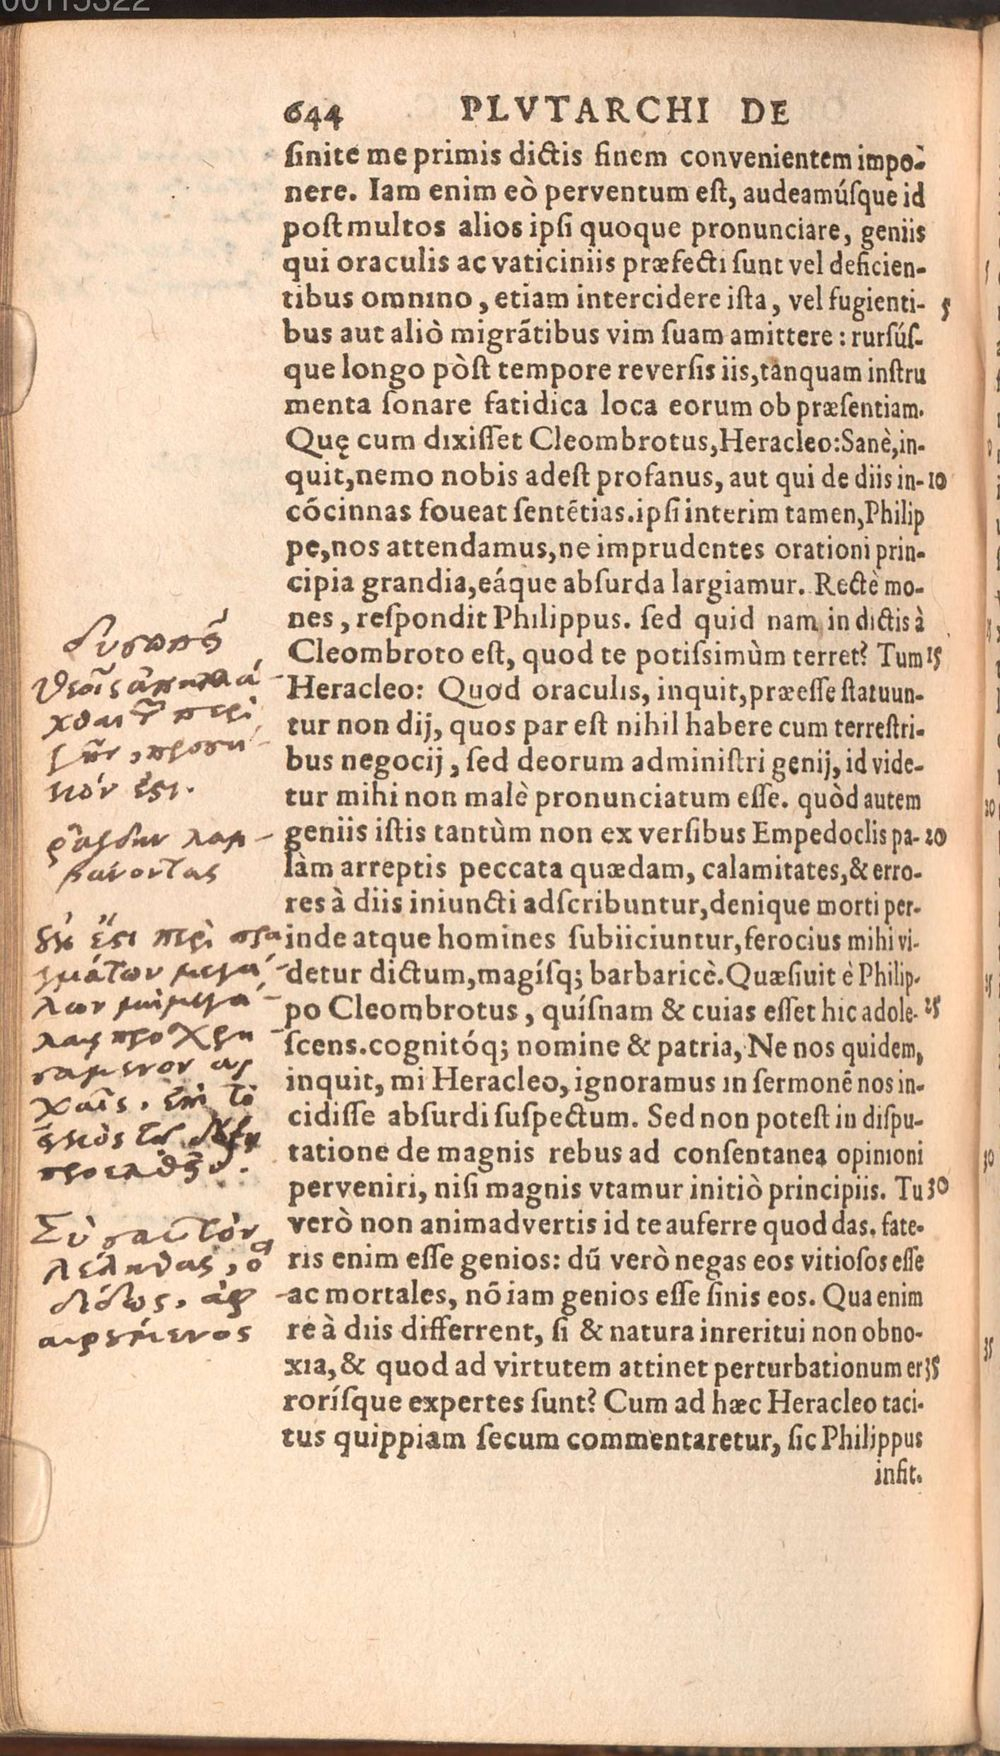 644 PLVTARCHI DE
ſinite me primis dictis finem convenientem impo-
nere. Iam enim eò perventum eſt, audeamúſque id
poſt multos alios ipſi quoque pronunciare, geniis
qui oraculis ac vaticiniis præfecti ſunt vel deficien-
tibus omnino, etiam intercidere iſta, vel fugienti- 5
bus aut aliò migrãtibus vim ſuam amittere: rurſúſ-
que longo pòſt tempore reverſis iis, tanquam inſtru
menta ſonare fatidica loca eorum ob præſentiam.
Quę cum dixiſſet Cleombrotus, Heracleo: Sanè, in-
quit, nemo nobis adeſt profanus, aut qui de diis in- 10
cõcinnas foueat ſentẽtias. ipſi interim tamen, Philip
pe, nos attendamus, ne imprudentes orationi prin-
cipia grandia, eáque abſurda largiamur. Rectè mo-
nes, reſpondit Philippus. ſed quid nam in dictis à
Cleombroto eſt, quod te potiſsimùm terret? Tum 15
Heracleo: Quod oraculis, inquit, præeſſe ſtatuun-
tur non dij, quos par eſt nihil habere cum terreſtri-
bus negocij, ſed deorum adminiſtri genij, id vide-
tur mihi non malè pronunciatum eſſe. quòd autem
geniis iſtis tantùm non ex verſibus Empedoclis pa- 20
làm arreptis peccata quædam, calamitates, & erro-
res à diis iniuncti adſcribuntur, denique morti per-
inde atque homines ſubiiciuntur, ferocius mihi vi-
detur dictum, magíſq; barbaricè. Quæſiuit è Philip-
po Cleombrotus, quíſnam & cuias eſſet hic adole- 25
ſcens. cognitóq; nomine & patria, Ne nos quidem,
inquit, mi Heracleo, ignoramus in ſermonẽ nos in-
cidiſſe abſurdi ſuſpectum. Sed non poteſt in diſpu-
tatione de magnis rebus ad conſentanea opinioni
perveniri, niſi magnis vtamur initiò principiis. Tu 30
verò non animadvertis id te auferre quod das. fate-
ris enim eſſe genios: dũ verò negas eos vitioſos eſſe
ac mortales, nõ iam genios eſſe ſinis eos. Qua enim
re à diis differrent, ſi & natura inreritui non obno-
xia, & quod ad virtutem attinet perturbationum er 35
roríſque expertes ſunt? Cum ad hæc Heracleo taci-
tus quippiam ſecum commentaretur, ſic Philippus
infit.
ῥάγδην λαμ
βάνοντας
οὐκ ἔστι περὶ πρα
γμάτων μεγά
λων μὴ μεγά
λαις προσχρη
σάμενον ἀρ
χαῖς, ἐπὶ τὸ
εἰκὸς τῇ δόξῃ
προελθεῖν.
Σὺ σαυτὸν
λέληθας, ὃ
δίδως, ἀφ
αιρούμενος